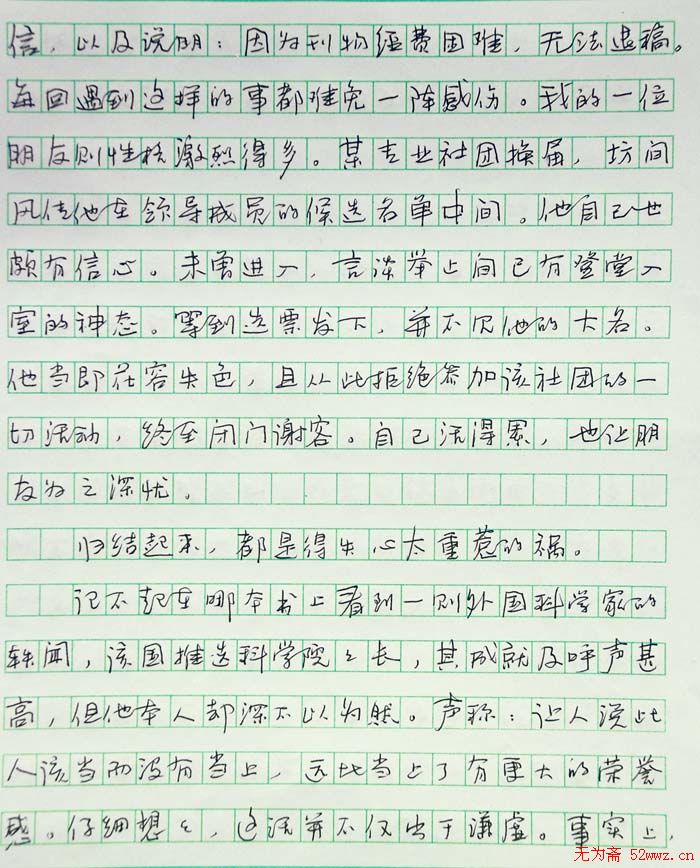 信，以及说明：因为刊物经费困难，无法退稿。
每回遇到这样的事都难免一阵感伤。我的一位
朋友则性格激烈得多。某专业社团换届，坊间
风传他在领导成员的候选名单中间。他自己也
颇有信心。未曾进入，言谈举止间已有登堂入
室的神态。等到选票发下，并不见他的大名。
他当即花容失色，且从此拒绝参加该社团的一
切活动，终至闭门谢客。自己活得累，也让朋
友为之深忧。
归结起来，都是得失心太重惹的祸。
记不起在哪本书上看到一则外国科学家的
轶闻，该国推选科学院之长，其成就及呼声甚
高，但他本人却深不以为然。声称：让人说此
人该当而没有当上，远比当上了有更大的荣誉
感。仔细想之，这话并不仅出于谦虚。事实上，
无为斋 52wwz.cn